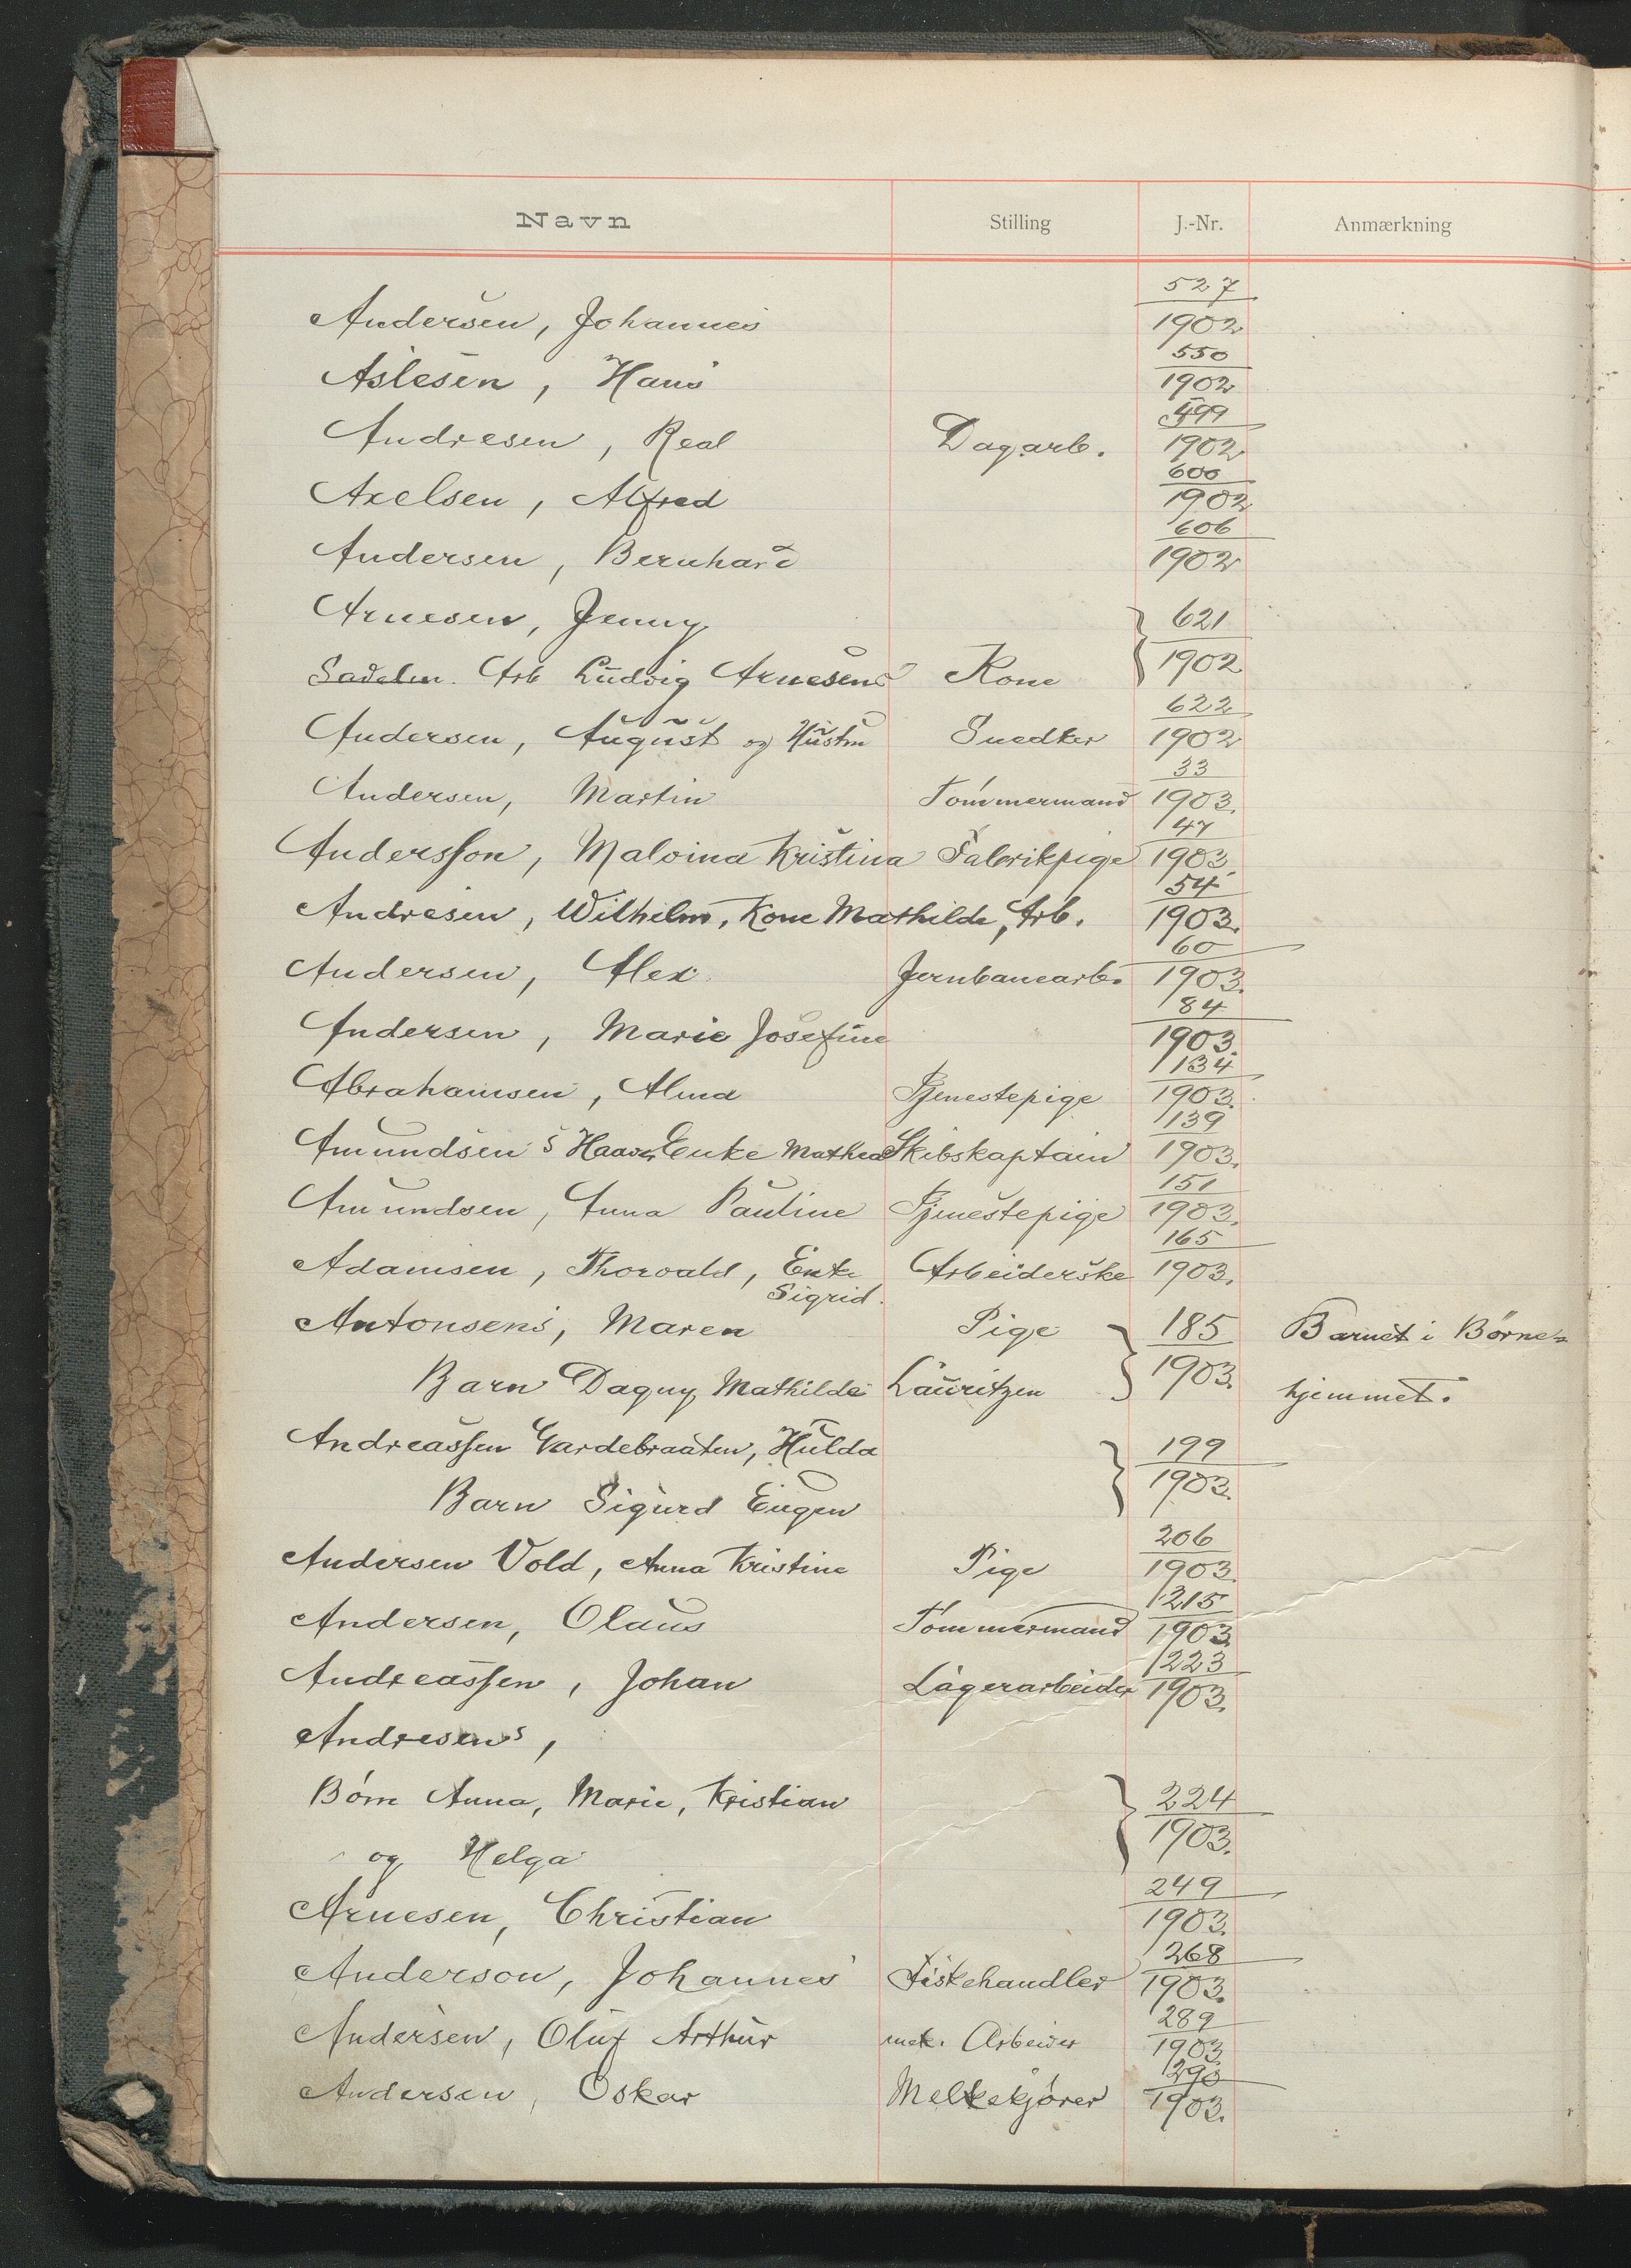 Navn Stilling J.-Nr. Anmærkning
Andersen, Johannes 527/1902
Aslesen, Hans 550/1902
Andresen, Real Dagarb. 599/1902
Axelsen, Alfred 600/1902
Andersen, Bernhard 606/1902
Arnesen, Jenny } 621
Sadelm. Arb Ludvig Arnesens Kone 1902
Andersen, August og Hustru Snedker 622/1902
Andersen, Martin Tömmermand 33/1903.
Andersson, Malvina Kristina Fabrikpige 47/1903.
Andresen, Wilhelm, Kone Mathilde, Arb. 54/1903.
Andersen, Alex. Jernbanearb. 60/1903.
Andersen, Marie Josefine 84/1903.
Abrahamsen, Alma Tjenestepige 134/1903.
Amundsen's Enke Mathea Skibskaptain 139/1903.
Amundsen, Anna Pauline Tjenestepige 151/1903.
Adamsen, Thorvald, Enke Arbeiderske 165/1903.
Sigrid.
Antonsen's, Maren Pige } 185 Barnet i Børne-
Barn Dagny Mathilde Lauritzen 1903. hjemmet.
Andreassen Gardebraaten, Hulda } 199
Barn Sigurd Eugen 1903.
Andersen Vold, Anna Kristine Pige 206/1903.
Andersen, Olaus Tömmermand 215/1903.
Andreassen, Johan Lagerarbeider 223/1903.
Andresens,
Börn Anna, Marie, Kristian } 224
og Helga 1903.
Arnesen, Christian 249/1903.
Anderson, Johannes Fiskehandler 268/1903.
Andersen, Oluf Arthur mek. Arbeider 289/1903
Andersen, Oskar Melkekjörer 290/1903.